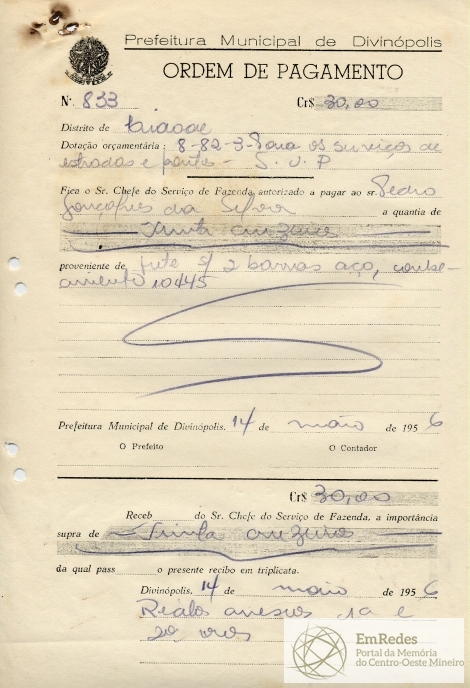 Prefeitura Municipal de Divinópolis
ORDEM DE PAGAMENTO
N.º 833 Cr$ 30,00
Distrito de
Dotação orçamentária: 8-82-3- Para os serviços de
estradas e pontes - S.V.P
Fica o Sr. Chefe do Serviço de Fazenda autorizado a pagar ao sr. Pedro
Gonçalves da Silva a quantia de
Trinta cruzeiros
proveniente de frete s/ 2 barras aço, conhe-
cimento 10445
Prefeitura Municipal de Divinópolis, 14 de maio de 1956
O Prefeito O Contador
Cr$ 30,00
Receb do Sr. Chefe do Serviço de Fazenda, a importância
supra de Trinta cruzeiros
da qual pass o presente recibo em triplicata.
Divinópolis, 14 de maio de 1956
anexos 1a e
vias
EmRedes
Portal da Memória
do Centro-Oeste Mineiro